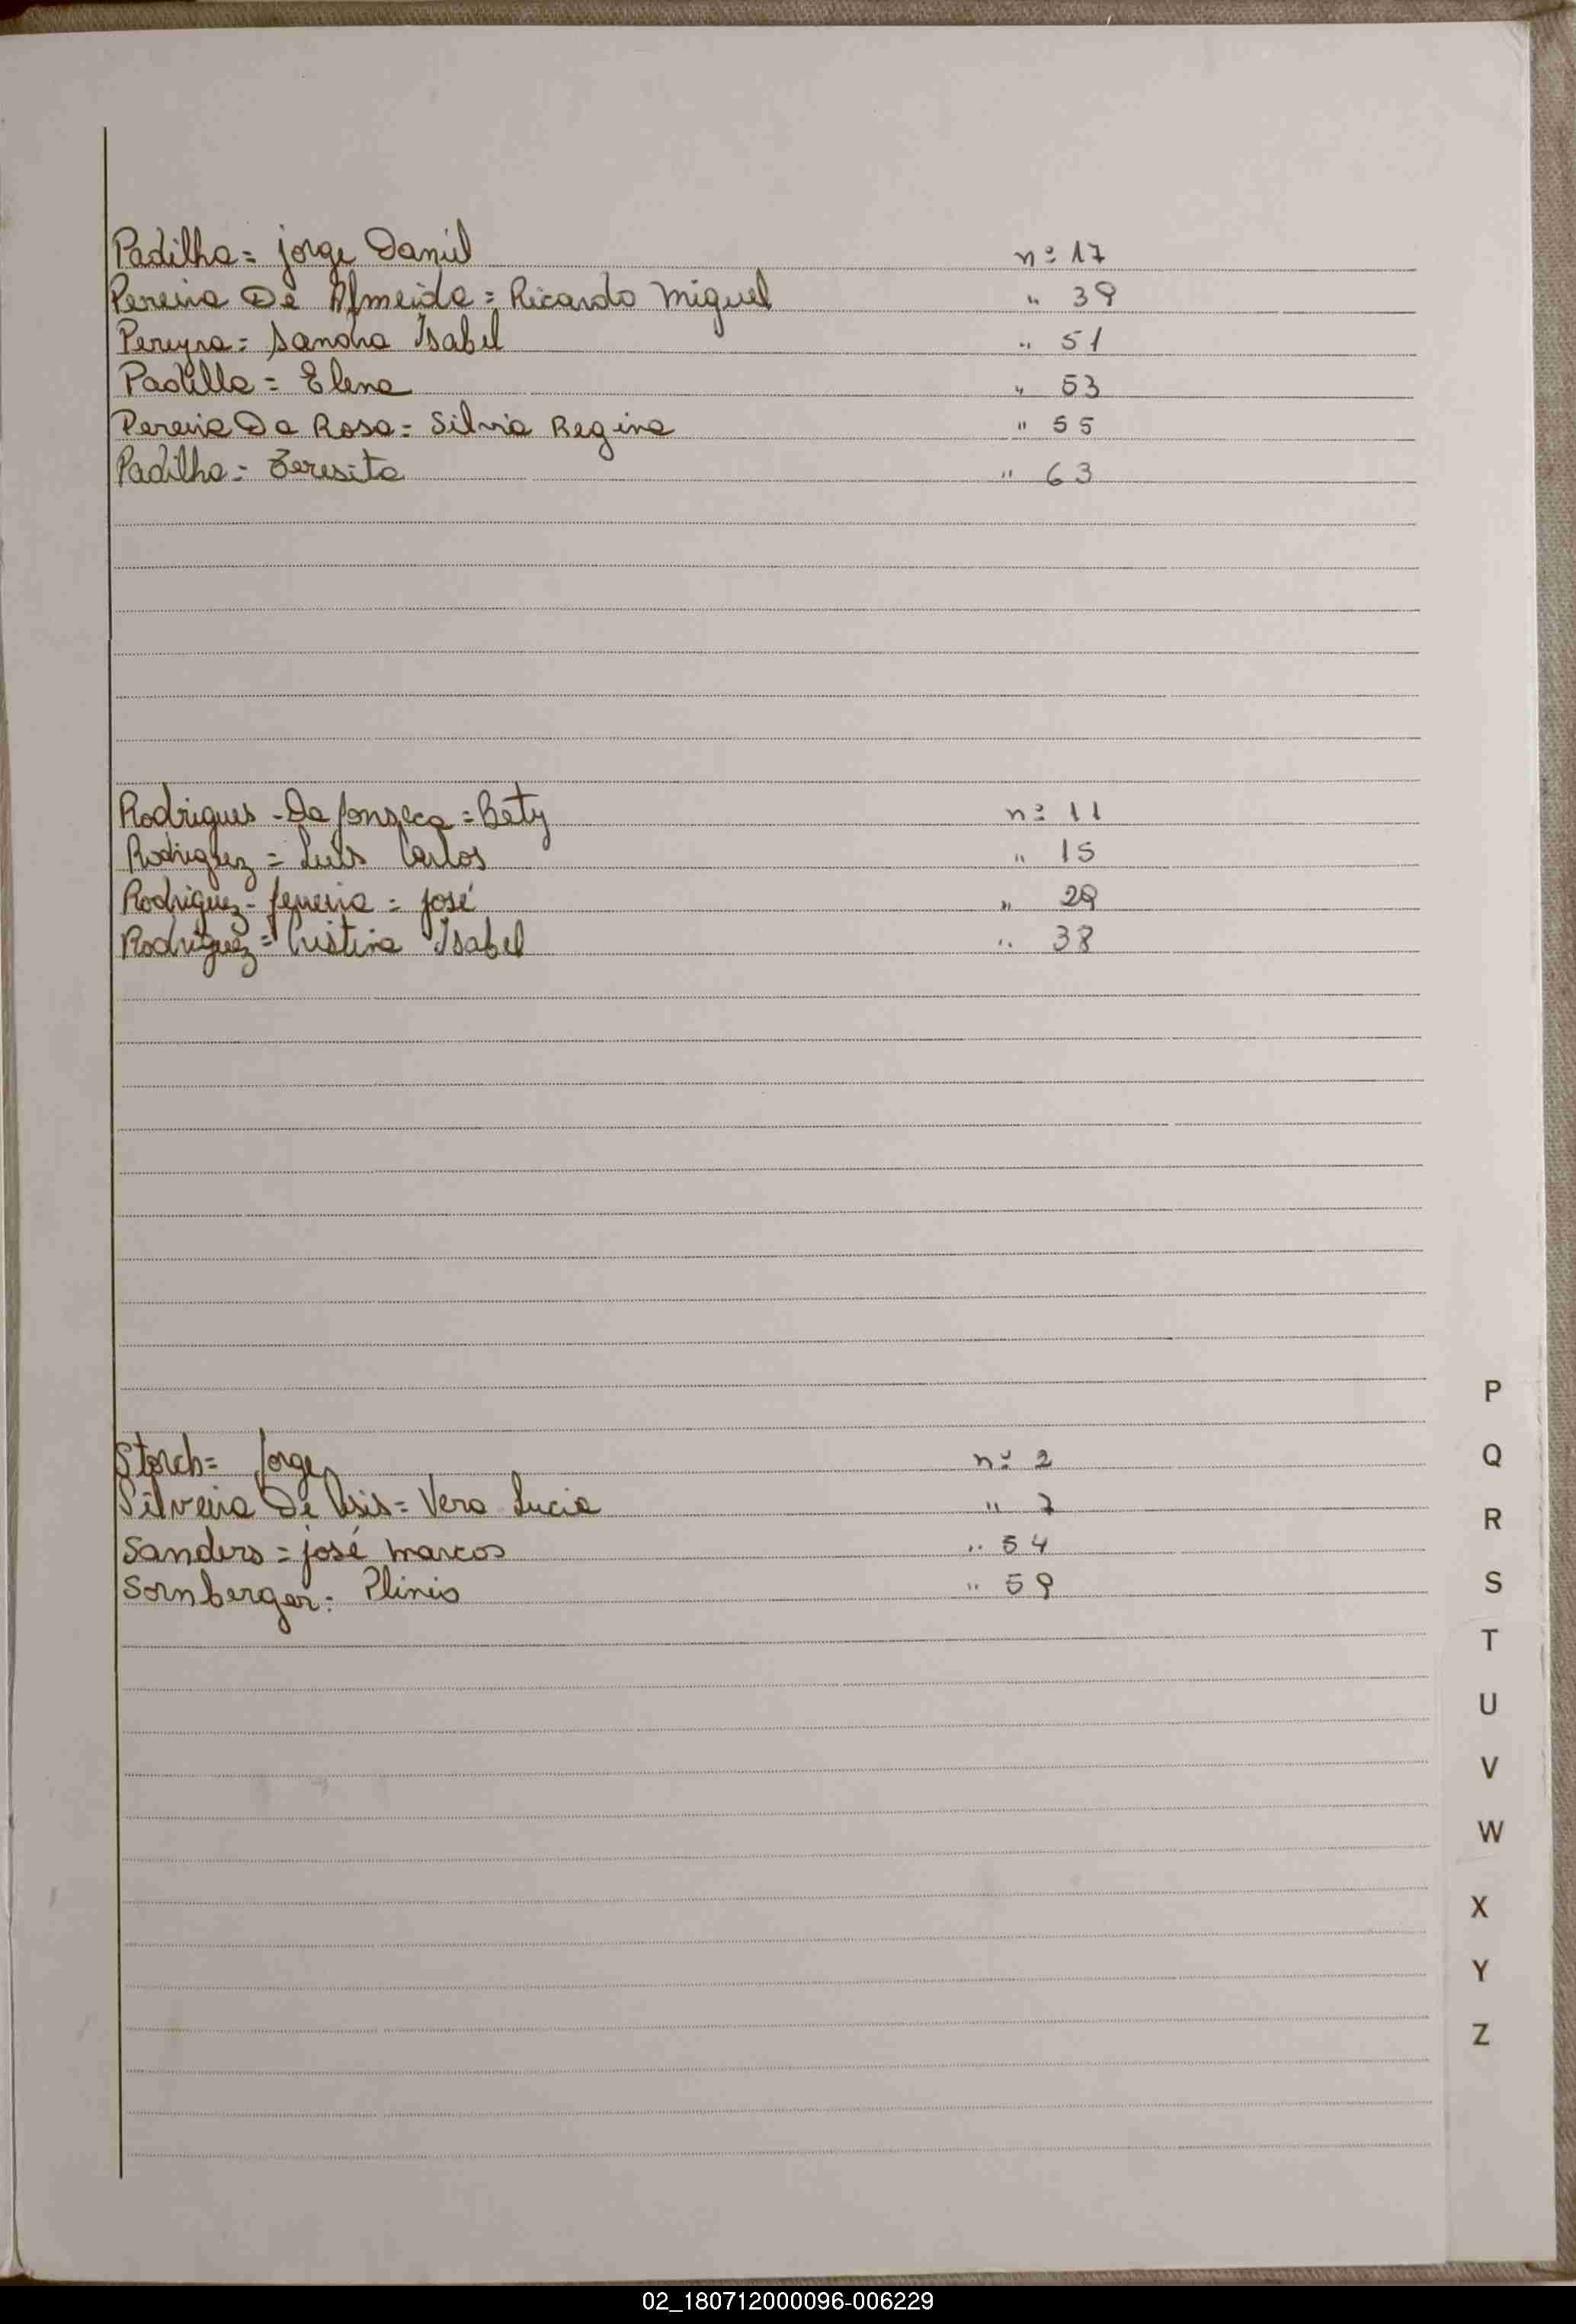 Padilha = Jorge Daniel nº 17
Pereira De Almeida = Ricardo Miguel " 39
Pereyra = Sandra Isabel " 51
Padilla = Elena " 53
Pereira Da Rosa = Silvia Regina " 55
Padilha = Teresita " 63
Rodrigues - Da Fonseca = Bety nº 11
Rodriguez = Luis Carlos " 15
Rodriguez - Ferreira = José " 29
Rodriguez = Cristina Isabel " 38
Storch = Jorge nº 2
Silveira De Assis = Vera Lucia " 7
Sanders = José Marcos " 54
Sornberger = Plinio " 59
P
Q
R
S
T
U
V
W
X
Y
Z
02_180712000096-006229